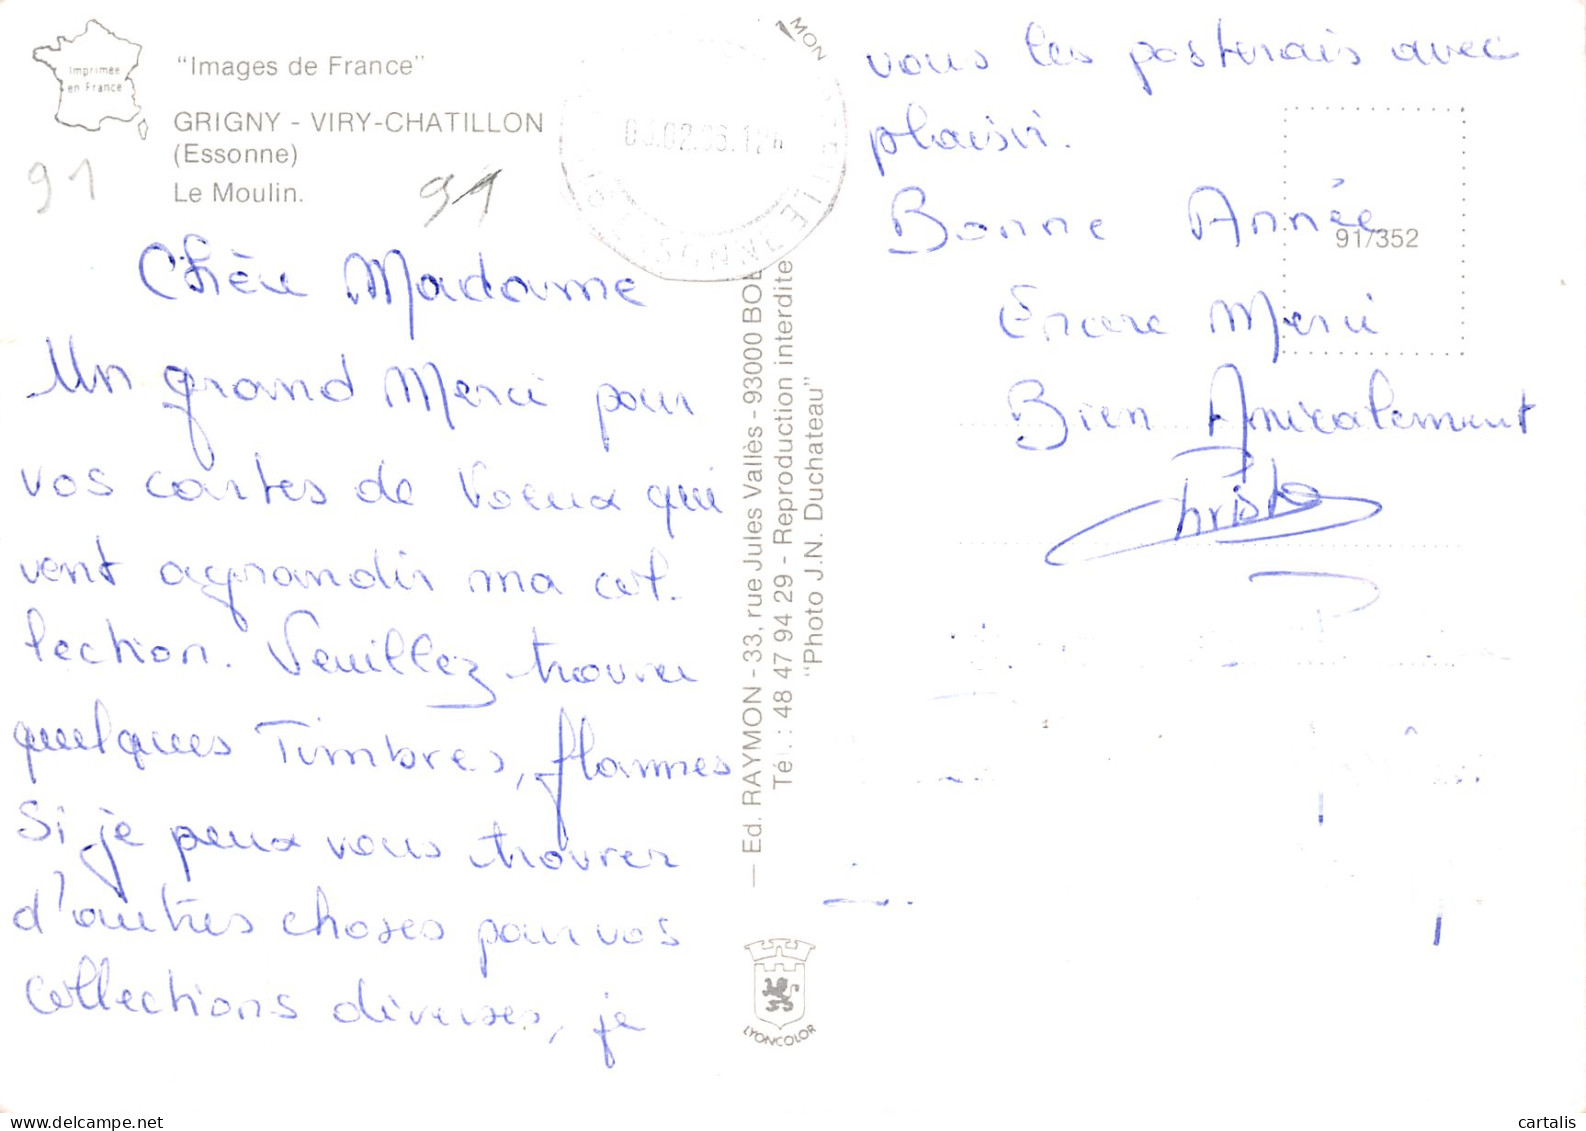 Imprimée
en France
"Images de France"
GRIGNY - VIRY-CHATILLON
(Essonne)
Le Moulin.
91
91
Chère Madame
Un grand Merci pour
vos cartes de Voeux qui
vont agrandir ma col.
lection. Veuillez trouver
quelques Timbres, flammes
Si je peux vous trouver
d'autres choses pour vos
collections diverses, je
vous les posterais avec
plaisir.
Bonne Année
Encore Merci
Bien Amicalement
91/352
— Ed. RAYMON - 33, rue Jules Vallès - 93000 BOB
Tél. : 48 47 94 29 - Reproduction interdite
"Photo J.N. Duchateau"
LYONCOLOR
cartalis